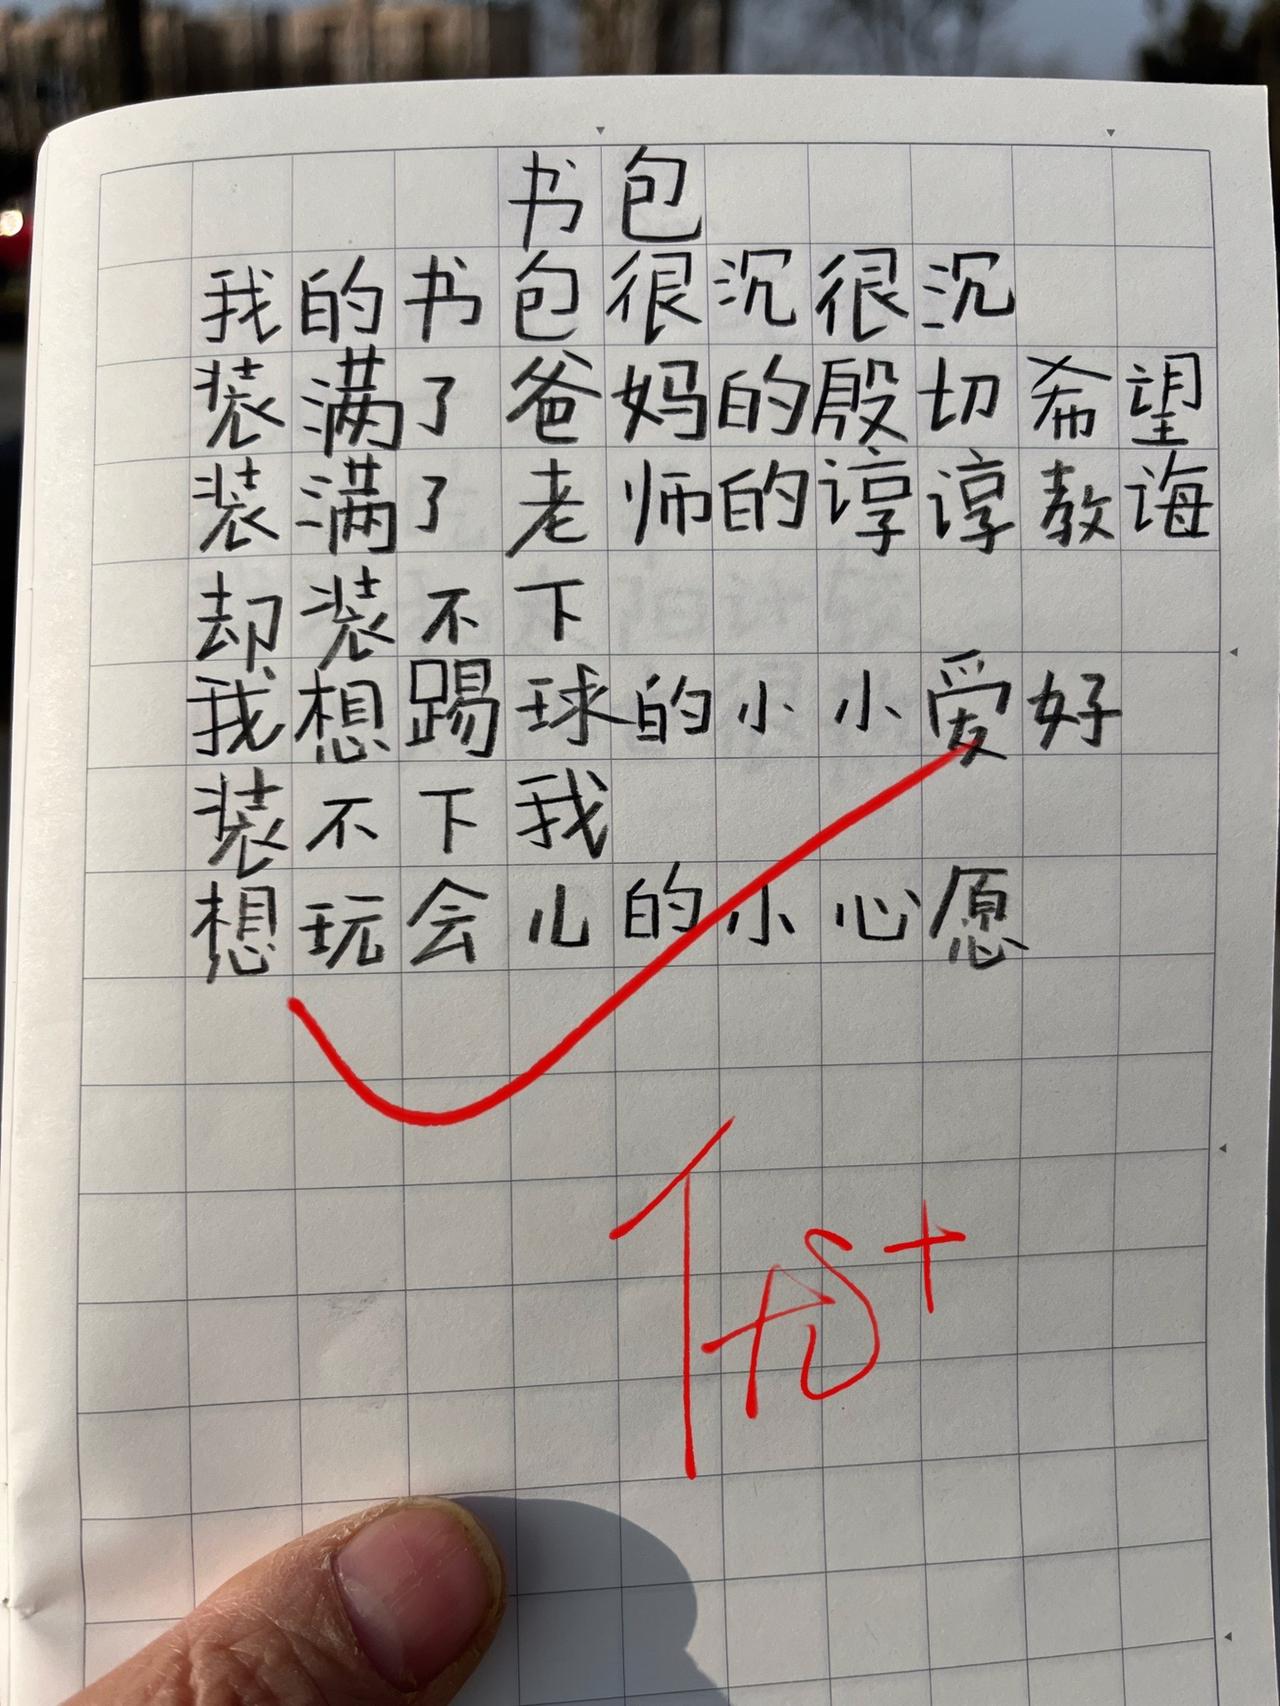 书包
我的书包很沉很沉
装满了爸妈的殷切希望
装满了老师的谆谆教诲
却装不下
我想踢球的小小爱好
装不下我
想玩会儿的小心愿
优+